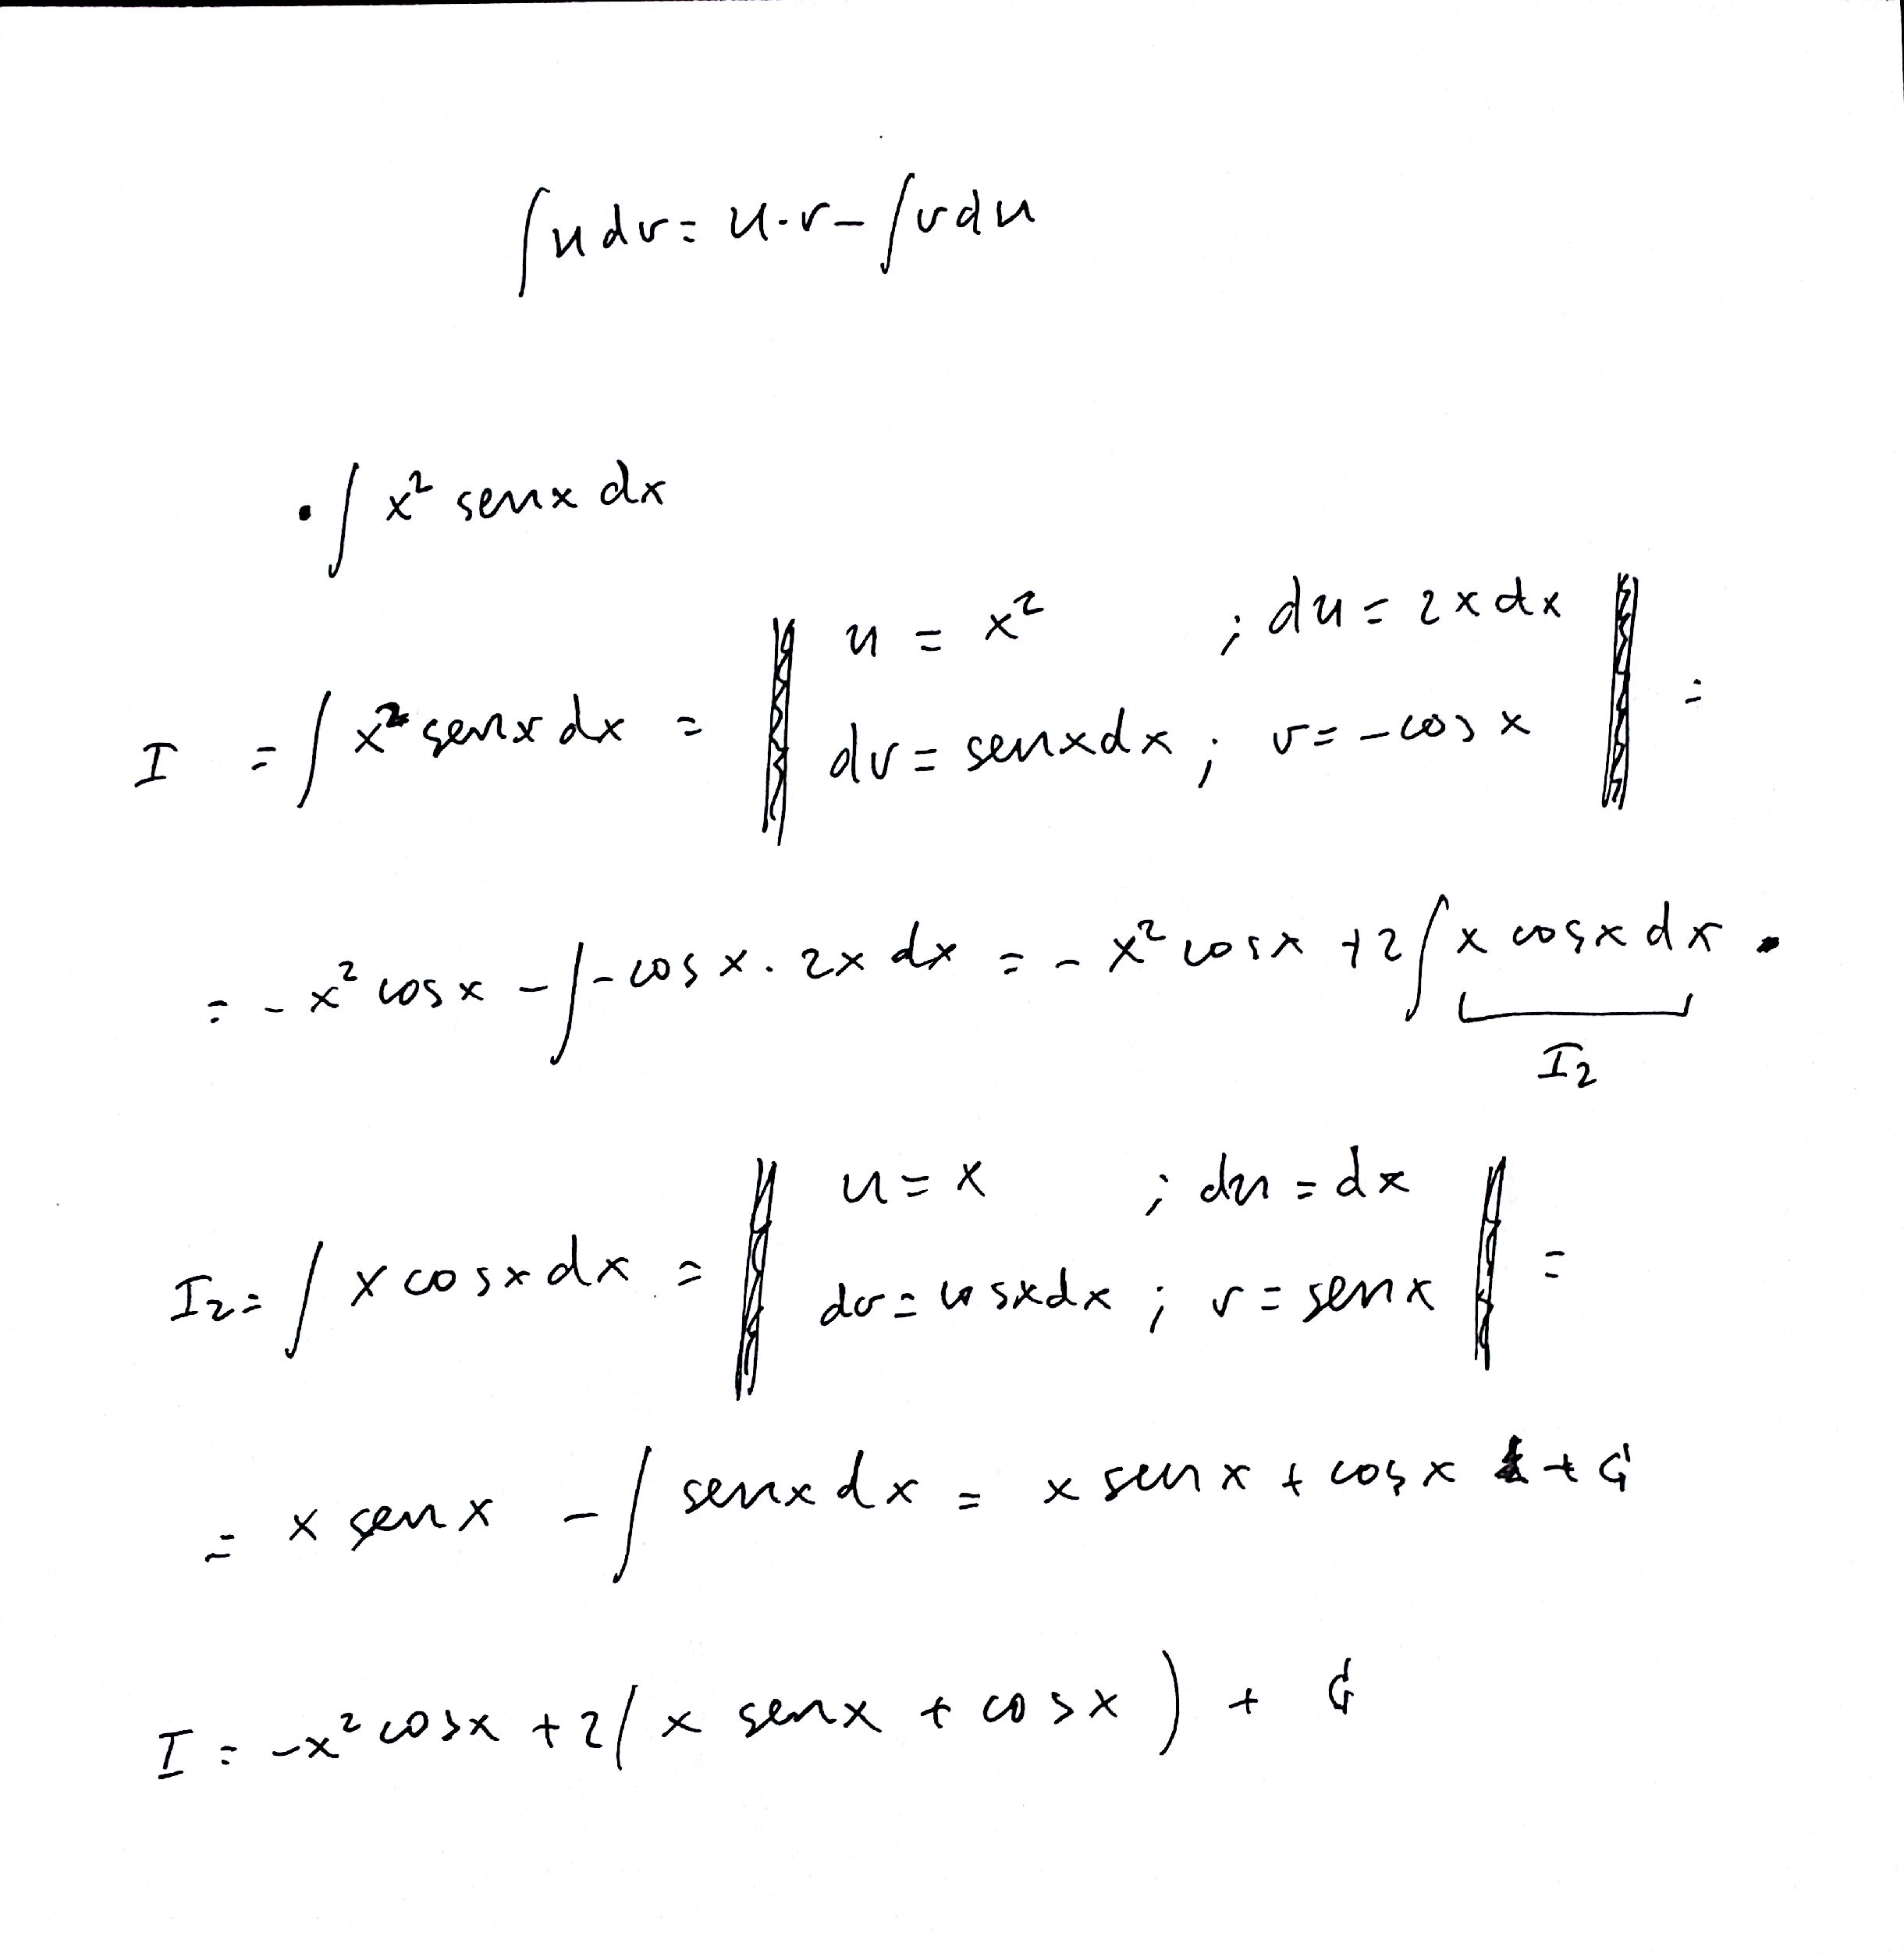 ∫u dv = u·v - ∫v du
• ∫ x² senx dx
u = x² ; du = 2x dx
I = ∫ x² senx dx = ‖ ‖ =
dv = senx dx ; v = -cos x
= -x² cos x - ∫ -cos x · 2x dx = -x² cosx + 2∫ x cosx dx .
I₂
u = x ; du = dx
I₂ = ∫ x cosx dx = ‖ ‖ =
dv = cosx dx ; v = senx
= x senx - ∫ senx dx = x senx + cosx + C
I = -x² cosx + 2( x senx + cosx ) + C